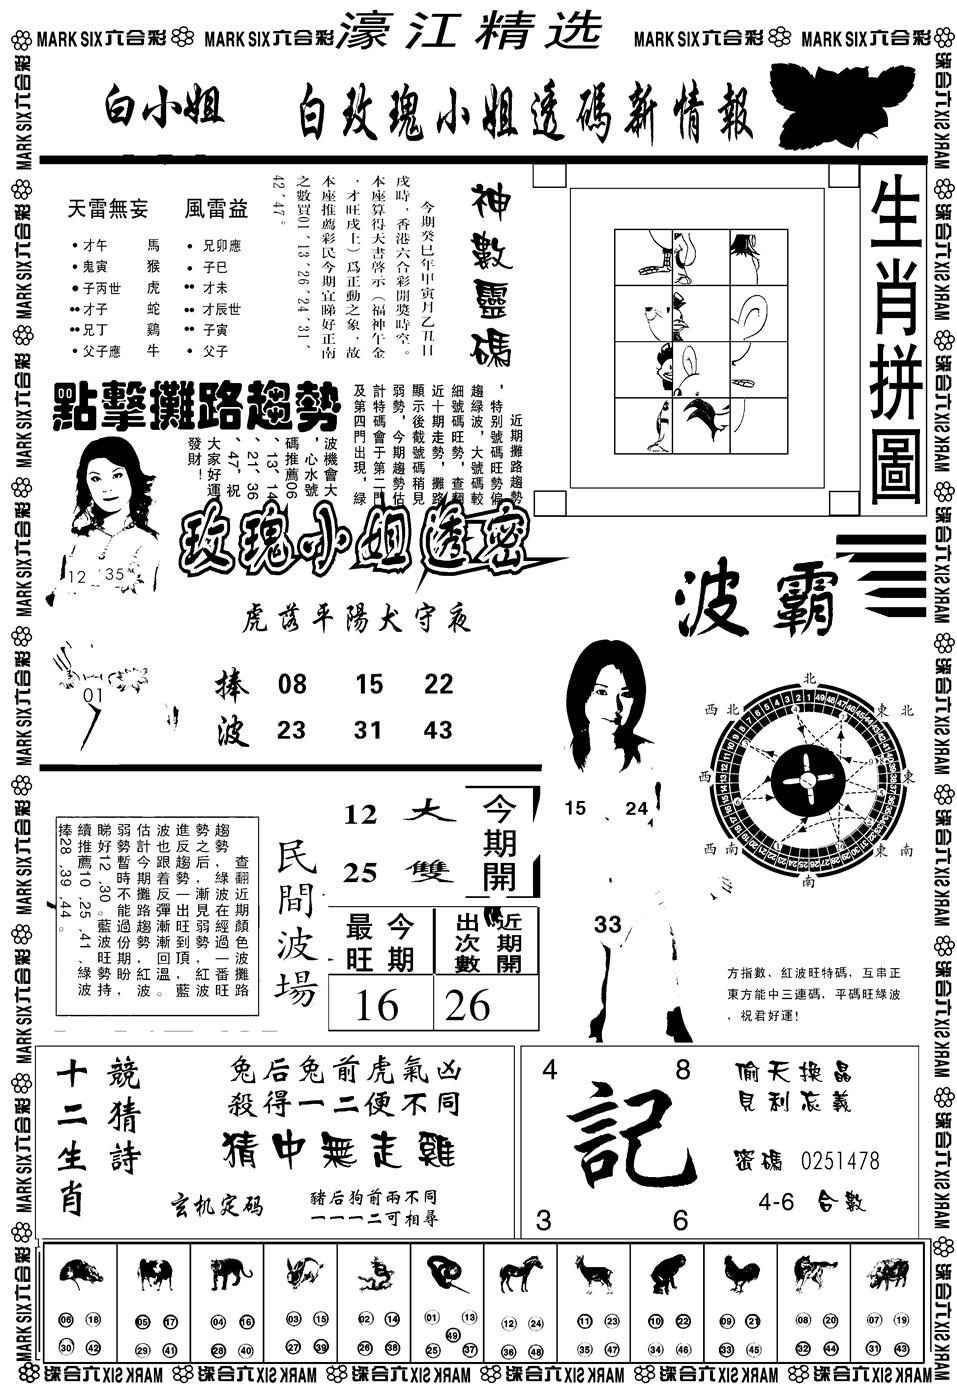 MARK SIX六合彩 MARK SIX六合彩 濠江精选 MARK SIX六合彩 MARK SIX六合彩
白小姐 白玫瑰小姐透碼新情報
天雷無妄 風雷益
•才午 馬 •兄卯應
•鬼寅 猴 •子巳
•子丙世 虎 ••才未
••才子 蛇 ••才辰世
••兄丁 鷄 ••子寅
•父子應 牛 •父子
神數靈碼
今期癸巳年甲寅月乙丑日
戌時，香港六合彩開獎時空。
本座算得天書啓示（福神午金
，才旺戌土）爲正動之象，故
本座推薦彩民今期宜睇好正南
之數買01、13、26、24、31、
42、47。
生肖拼圖
點擊攤路趨勢
近期攤路趨勢
，特别號碼旺勢偏
趨綠波，大號碼較
細號碼旺勢，查翻
近十期走勢，攤路
顯示後截號碼稍見
弱勢，今期趨勢估
計特碼會于第二門
及第四門出現，綠
波機會大
，心水號
碼推薦06
、13、14
、21、36
、47，祝
大家好運
發財！
12 35
01
玫瑰小姐透密
虎落平陽犬守夜
捧 08 15 22
波 23 31 43
波霸
15 24
33
北
東北
東
東南
南
西南
西
西北
方指數，紅波旺特碼，互串正
東方能中三連碼，平碼旺綠波
，祝君好運！
查翻近期顏色波攤路
趨勢，綠波在經過一番旺
勢之后，漸見弱勢，紅波
進反趨勢一出旺到頂，藍
波也跟着反彈漸漸回溫。
估計今期攤路趨勢，紅波
弱勢暫時不能過份期盼，
睇好12、30。藍波旺勢持
續推薦10、25、41，綠波
捧28、39、44。
民間波場
12 大
25 雙
今期開
最旺 今期
出次數 近期開
16 26
十二生肖
競猜詩
兔后兔前虎氣凶
殺得一二便不同
猜中無走雞
玄机定码
豬后狗前兩不同
一一一二可相尋
4 8
記
3 6
偷天換晶
見利忘義
密碼 0251478
4-6 合數
06 18 05 17 04 16 03 15 02 14 01 13 12 24 11 23 10 22 09 21 08 20 07 19
49
30 42 29 41 28 40 27 39 26 38 25 37 36 48 35 47 34 46 33 45 32 44 31 43
MARK SIX六合彩 MARK SIX六合彩 MARK SIX六合彩 MARK SIX六合彩 MARK SIX六合彩 MARK SIX六合彩